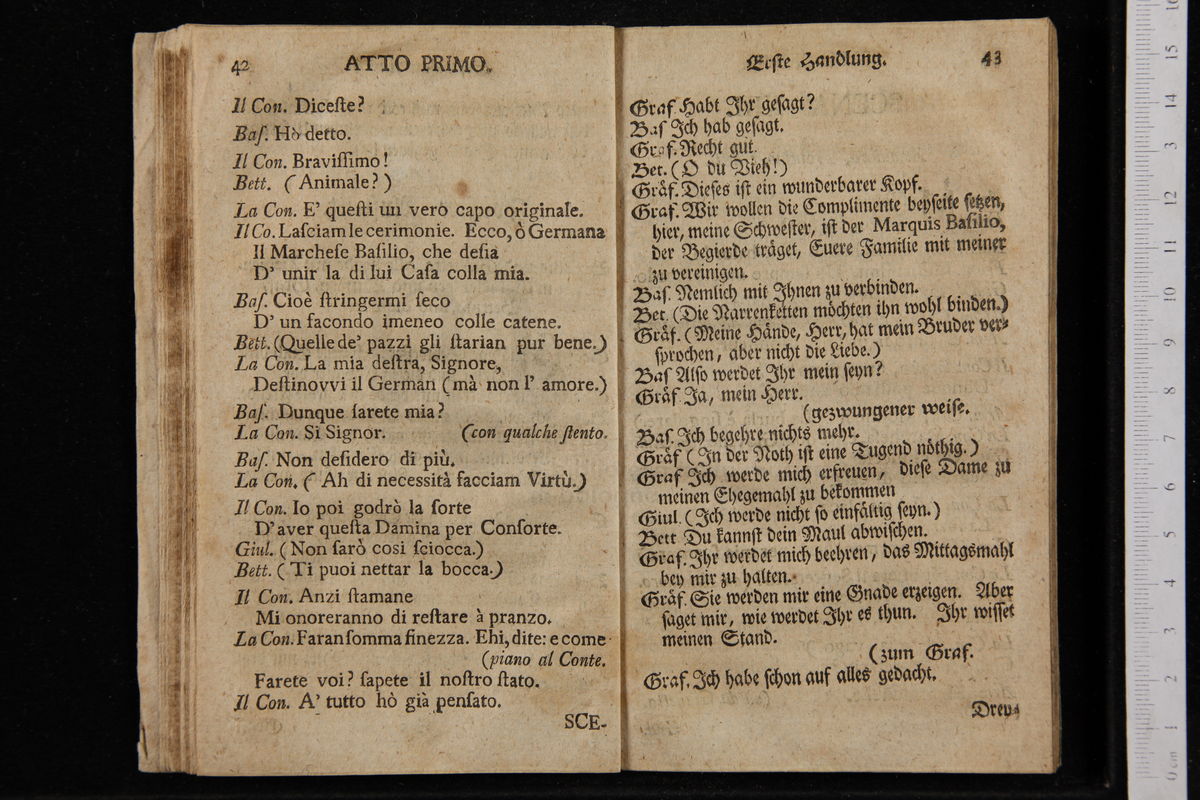 42 ATTO PRIMO.
Il Con. Diceſte?
Baſ. Hò detto.
Il Con. Braviſſimo!
Bett. (Animale?)
La Con. E' queſti un vero capo originale.
Il Co. Laſciam le cerimonie. Ecco, ò Germana
Il Marcheſe Baſilio, che deſia
D' unir la di lui Caſa colla mia.
Baſ. Cioè ſtringermi ſeco
D' un facondo imeneo colle catene.
Bett. (Quelle de' pazzi gli ſtarian pur bene.)
La Con. La mia deſtra, Signore,
Deſtinovvi il German (mà non l' amore.)
Baſ. Dunque ſarete mia?
La Con. Si Signor. (con qualche ſtento.
Baſ. Non deſidero di più.
La Con. (Ah di necessità facciam Virtù.)
Il Con. Io poi godrò la ſorte
D'aver queſta Damina per Conſorte.
Giul. (Non ſarò cosi ſciocca.)
Bett. (Ti puoi nettar la bocca.)
Il Con. Anzi ſtamane
Mi onoreranno di reſtare à pranzo.
La Con. Faran ſomma finezza. Ehi, dite: e come
(piano al Conte.
Farete voi? ſapete il noſtro ſtato.
Il Con. A' tutto hò già penſato.
SCE-
Erſte Handlung. 43
Graf. Habt Ihr geſagt?
Baſ Ich hab geſagt.
Graf. Recht gut.
Bet. (O du Vieh!)
Gräf. Dieſes iſt ein wunderbarer Kopf.
Graf. Wir wollen die Complimente beyſeite ſetzen,
hier, meine Schweſter, iſt der Marquis Baſilio,
der Begierde träget, Euere Familie mit meiner
zu vereinigen.
Baſ. Nemlich mit Ihnen zu verbinden.
Bet. (Die Narrenketten möchten ihn wohl binden.)
Gräf. (Meine Hände, Herr, hat mein Bruder ver-
ſprochen, aber nicht die Liebe.)
Baſ Alſo werdet Ihr mein ſeyn?
Gräf Ja, mein Herr.
(gezwungener weiſe.
Baſ. Ich begehre nichts mehr.
Gräf (In der Noth iſt eine Tugend nöthig.)
Graf Ich werde mich erfreuen, dieſe Dame zu
meinen Ehegemahl zu bekommen
Giul. (Ich werde nicht ſo einfältig ſeyn.)
Bett Du kannſt dein Maul abwiſchen.
Graf. Ihr werdet mich beehren, das Mittagsmahl
bey mir zu halten.
Gräf. Sie werden mir eine Gnade erzeigen. Aber
ſaget mir, wie werdet Ihr es thun. Ihr wiſſet
meinen Stand.
(zum Graf.
Graf. Ich habe ſchon auf alles gedacht.
Drey-